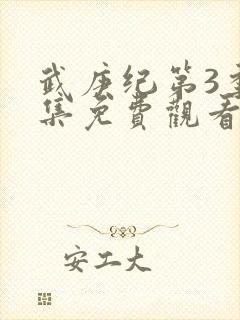 武庚纪第3季
集免費觀看
安工大